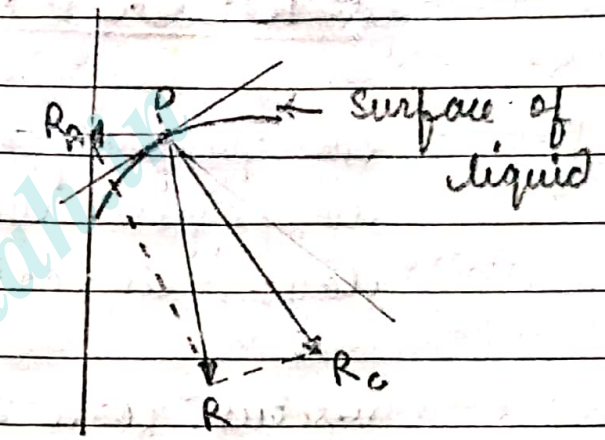 P
surface of
liquid
R
Rc